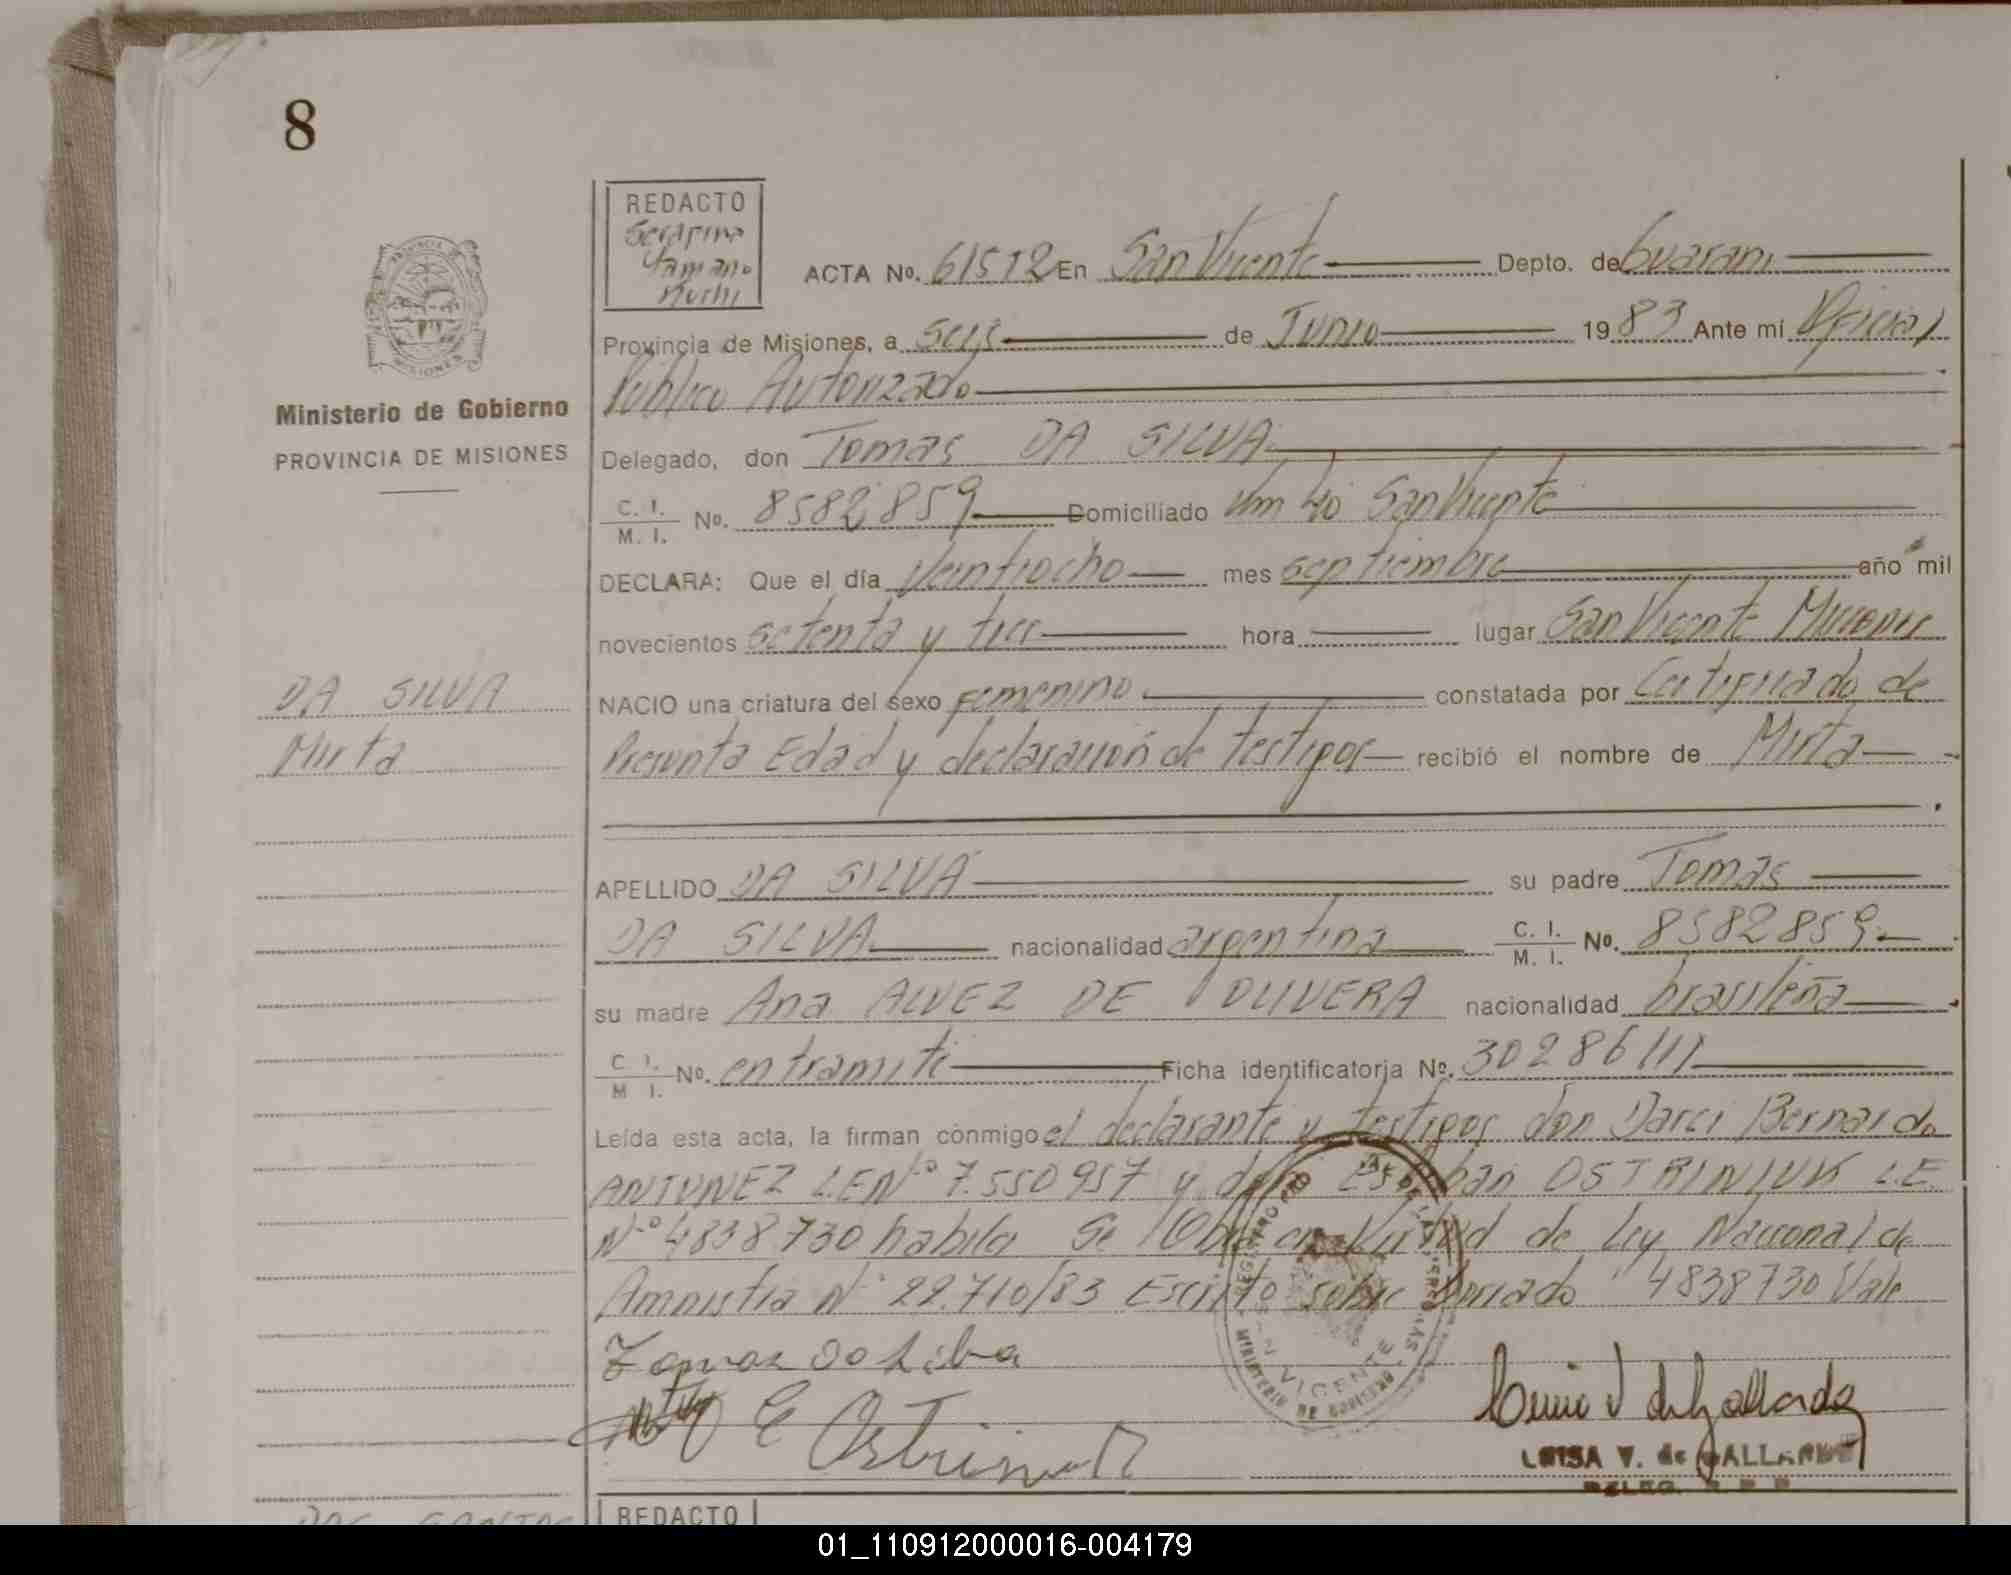 8
REDACTO
Serafina
Yamano
Kuchi
ACTA No. 61512 En San Vicente Depto. de Guarani
Provincia de Misiones, a seis de Junio 1983 Ante mí Oficial
Público Autorizado
Ministerio de Gobierno
PROVINCIA DE MISIONES
Delegado, don Tomas DA SILVA
C. I. / M. I. No. 8582859 Domiciliado Km 40 San Vicente
DECLARA: Que el día Veintiocho mes septiembre año mil
novecientos setenta y tres hora lugar San Vicente Misiones
DA SILVA
Mirta
NACIO una criatura del sexo femenino constatada por Certificado de
Presunta Edad y declaración de testigos recibió el nombre de Mirta
APELLIDO DA SILVA su padre Tomas
DA SILVA nacionalidad argentina C. I. / M. I. No. 8582859
su madre Ana ALVEZ DE OLIVERA nacionalidad brasileña
C. I. / M. I. No. en tramite Ficha identificatoria No. 30286111
Leída esta acta, la firman conmigo el declarante y testigos don Darci Bernardo
ANTUNEZ L.E Nº 7.550957 y don Esteban OSTRINIUK L.E.
Nº 4838730 habila Se Obra en Virtud de Ley Nacional de
Amnistia Nº 22.710/83 Escrito sobre borrado 4838730 Vale
REGISTRO PRO DE LAS PERSONAS
SAN VICENTE
MINISTERIO DE GOBIERNO
E Ostriniuk
LUISA V. de GALLARDO
DELEG. R P P
DOS SANTOS
REDACTO
01_110912000016-004179